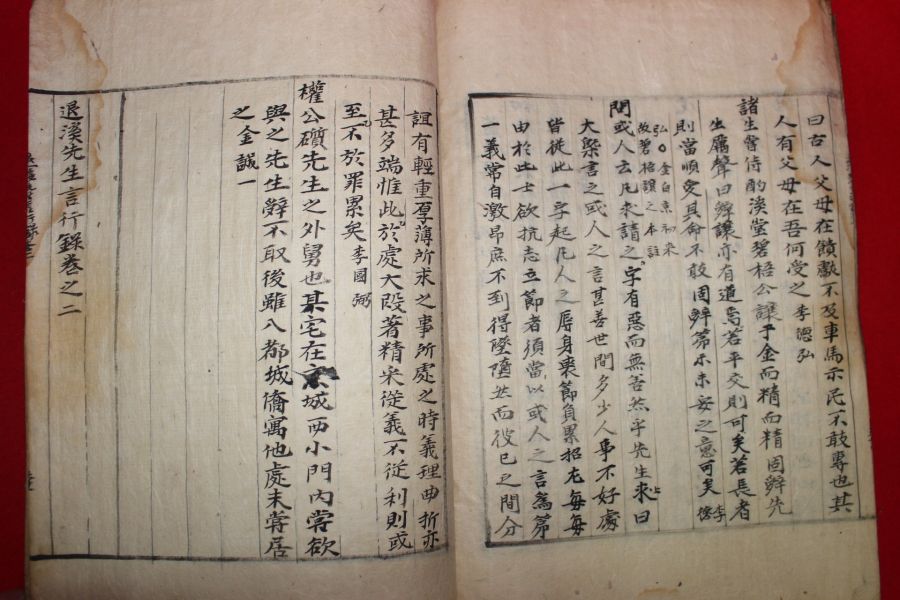 曰古人父母在饋獻不及車馬示民不敢專也其
人有父母在吾何受之 李德弘
諸生會侍酌溪堂碧梧公讓于金而精而精固辭先
生厲聲曰辭讓亦有道焉若平交則可矣若長者
則當順受其命不敢固辭第示未安之意可矣 李
弘〇金自初來
故碧梧讓之 本註
問或人云凡求請之字有惡而無善然乎先生來曰
大槩書之或人之言甚善世間多少人事不好處
皆從此一字起凡人之辱身喪節負累招尤每每
由於此士欲抗志立節者須當以或人之言爲第
一義常自激昂庶不到得墜墮然而彼已之間分
誼有輕重厚薄所求之事所處之時義理曲折亦
甚多端惟此於處大段著精采從義不從利則或
至不於罪累矣 李國弼
權公礩先生之外舅也某宅在京城西小門內嘗欲
與之先生辭不取後雖入都城僑寓他處未嘗居
之 金誠一
退溪先生言行錄卷之二